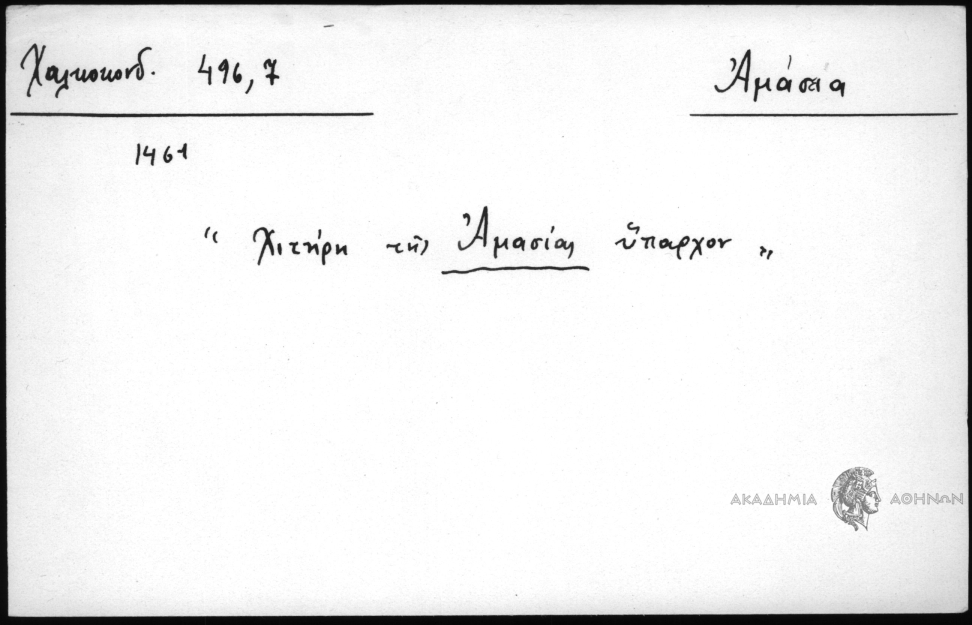 Χαλκοκονδ. 496,7
Ἀμάσεια
1461
“ Χιτήρη τῆς Ἀμασίας ὕπαρχον „
ΑΚΑΔΗΜΙΑ ΑΘΗΝΩΝ